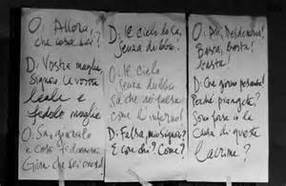 O: Allora,
che cosa sei?
D: Vostra moglie,
Signore la vostra
leale e
fedele moglie
O: Su, giuralo
e
Giura che sei
D: Il cielo lo sa,
senza dubbio!
O: Il cielo
senza dubbio
sa che sei
come l'inferno!
D: Falsa, mio signore?
E con chi? Come?
O: Ah, Desdemona!
Basta, basta!
basta!
D: Che giorno pesante!
Perché piangete?
Sono forse io la
causa di queste
lacrime?